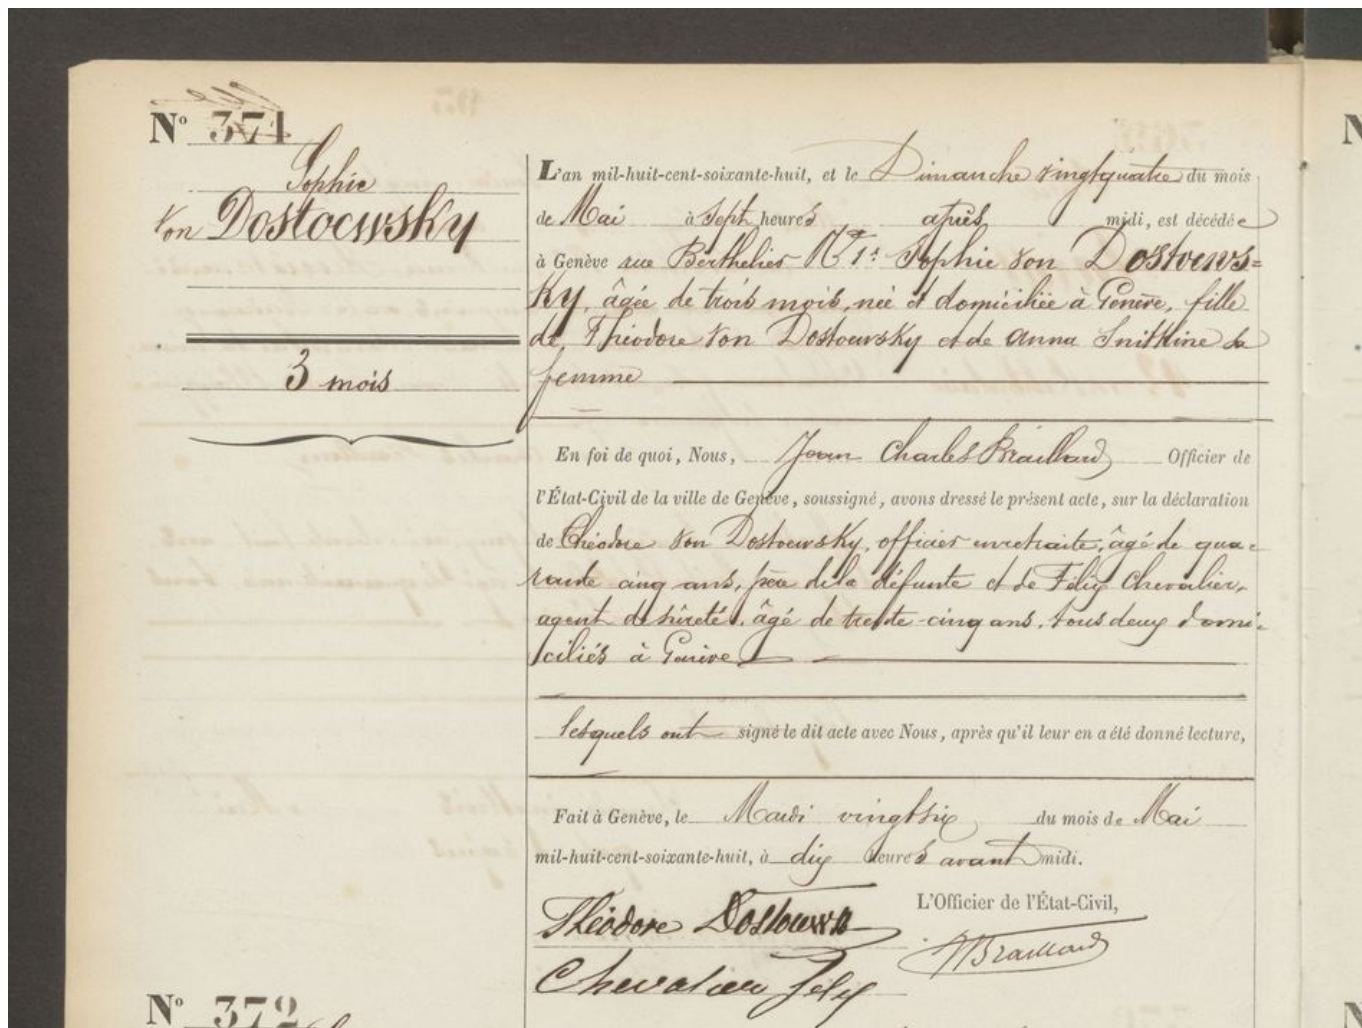 N° 371
Sophie
von Dostoewsky
3 mois
L'an mil-huit-cent-soixante-huit, et le Dimanche vingtquatre du mois
de Mai à Sept heures après midi, est décédée
à Genève rue Berthelier N° 1: Sophie von Dostoews=
ky, âgée de trois mois, née et domiciliée à Genève, fille
de Théodore von Dostoewsky et de Anna Snitkine sa
femme
En foi de quoi, Nous, Jean Charles Braillard Officier de
l'État-Civil de la ville de Genève, soussigné, avons dressé le présent acte, sur la déclaration
de Théodore von Dostoewsky, officier en retraite, âgé de qua-
rante cinq ans, père de la défunte et de Félix Chevalier,
agent de sûreté, âgé de trente-cinq ans, tous deux domi-
ciliés à Genève
lesquels ont signé le dit acte avec Nous, après qu'il leur en a été donné lecture,
Fait à Genève, le Mardi vingtsix du mois de Mai
mil-huit-cent-soixante-huit, à dix heures avant midi.
L'Officier de l'État-Civil,
Théodore
JBraillard
Chevalier Felix
N° 372